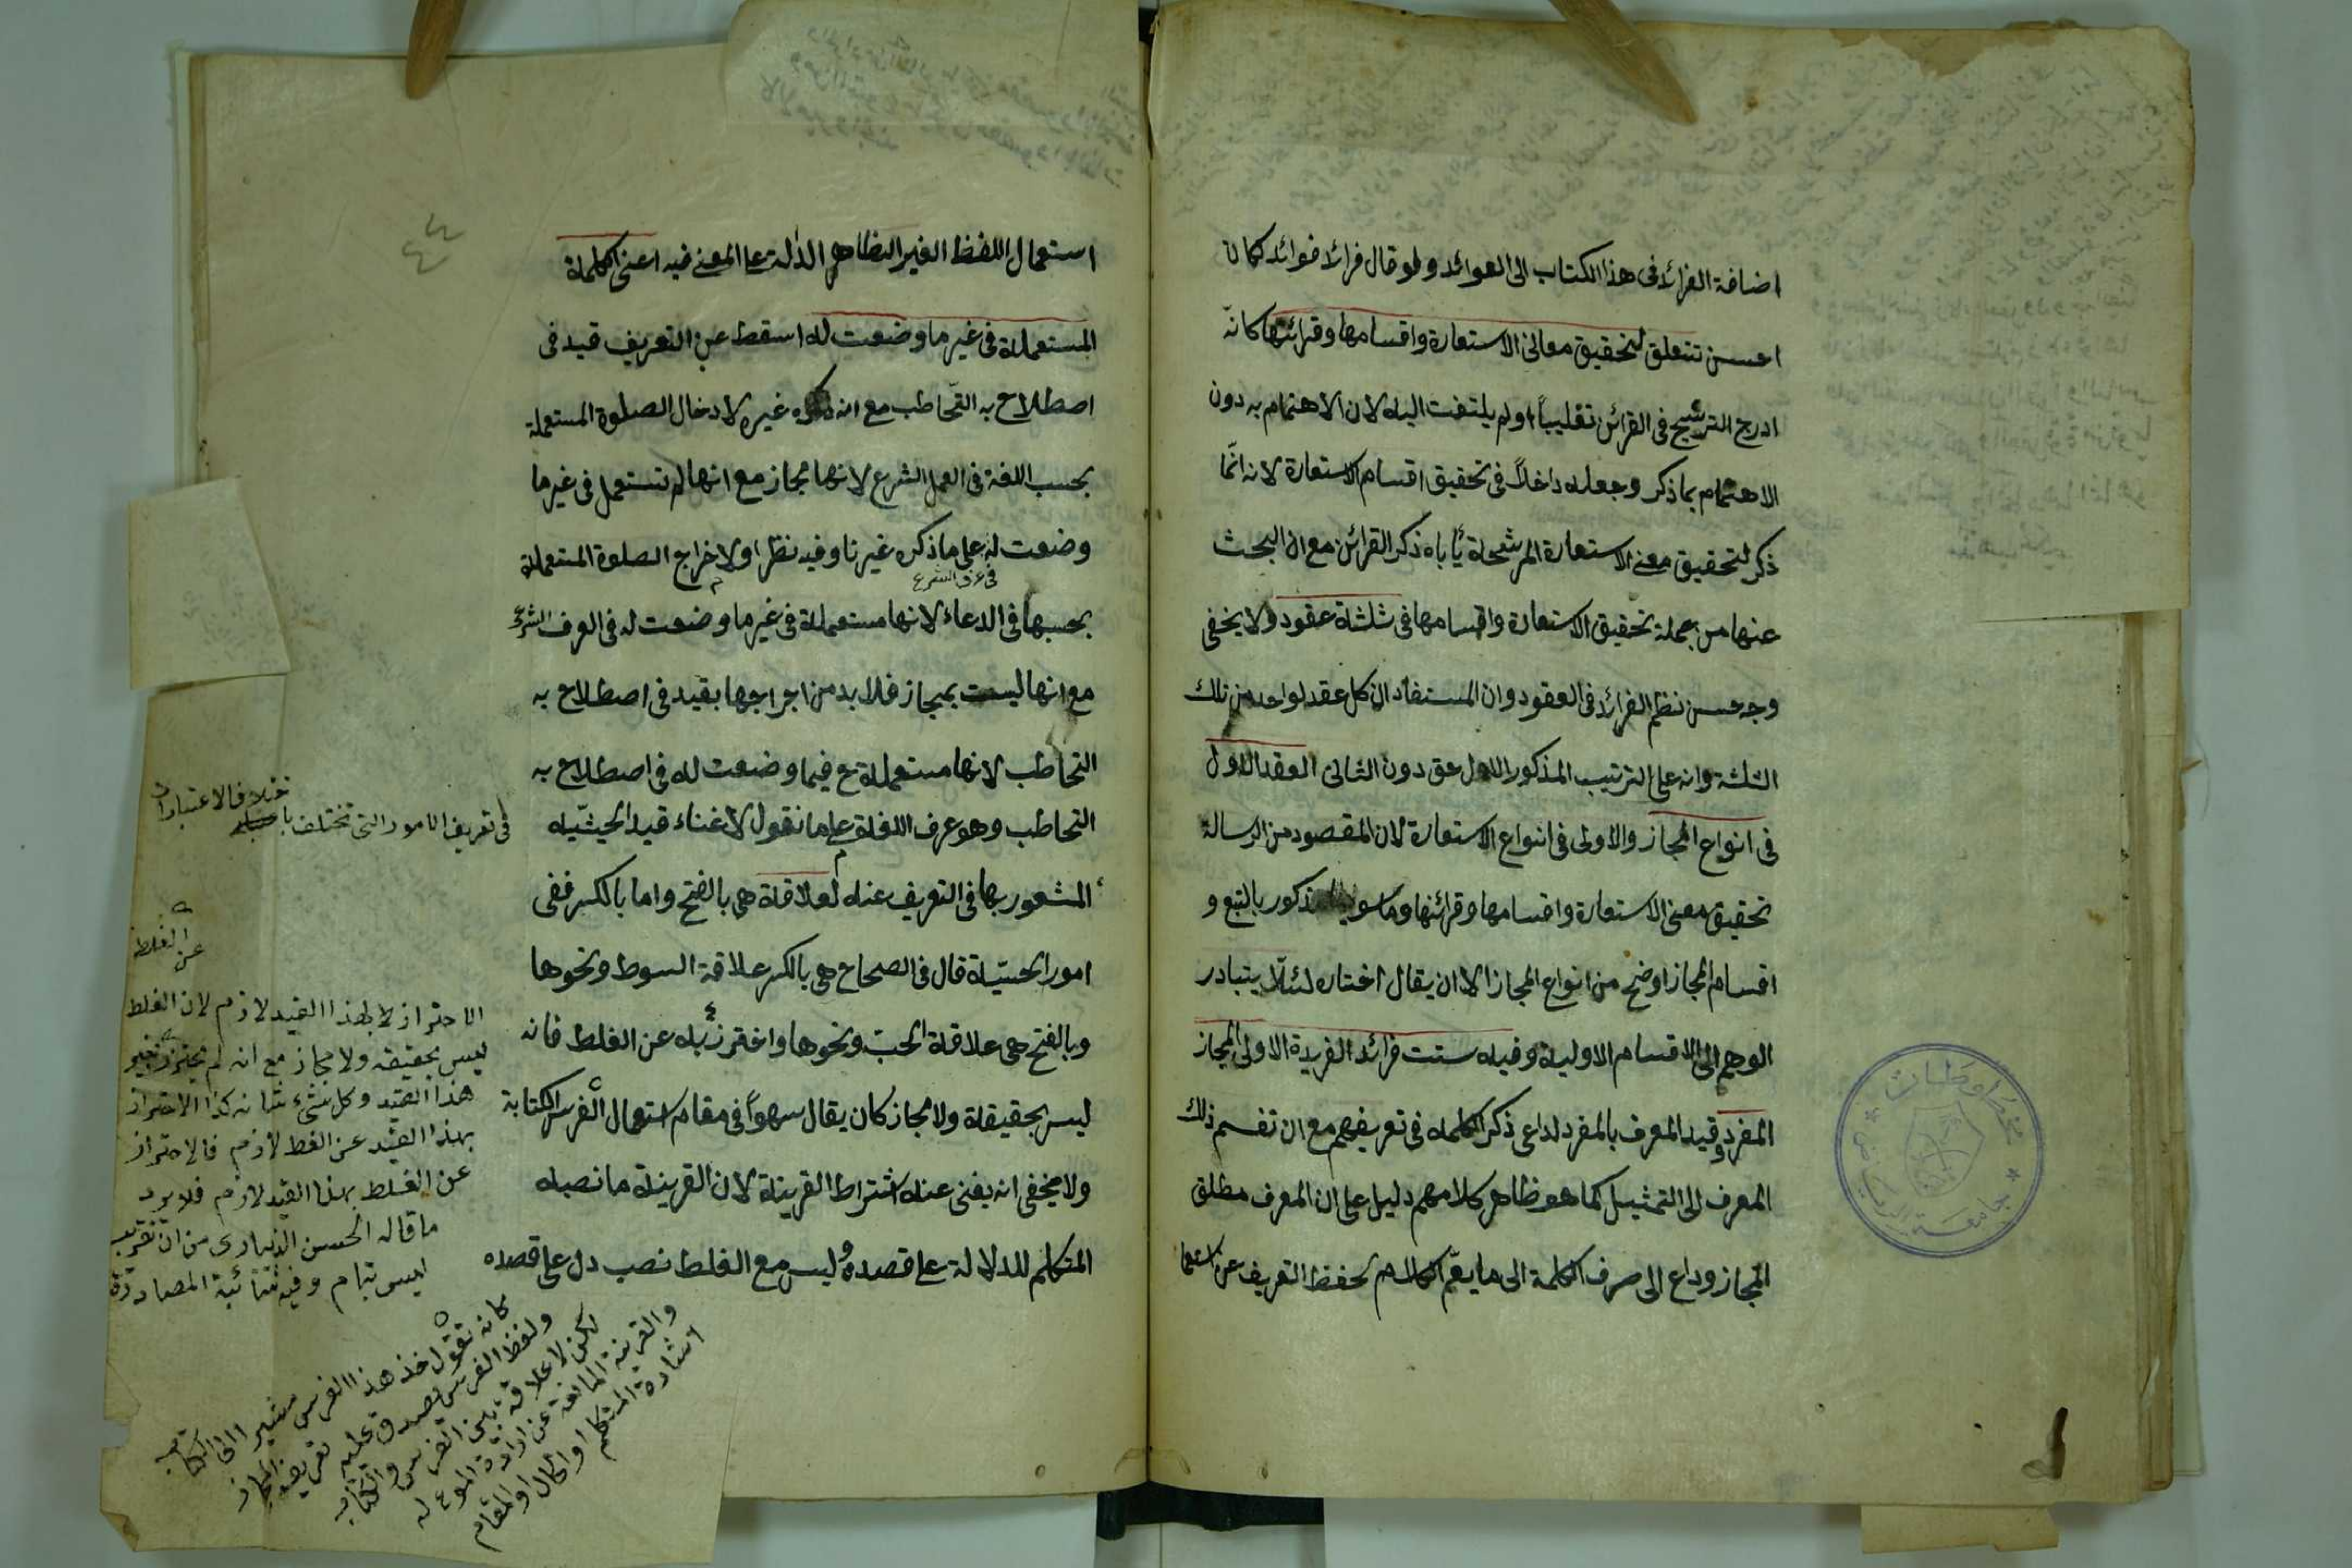 اضافة الفرائد فى هذا الكتاب الى العوائد ولو قال فرائد فوائد لكان
احسن تتعلق لتحقيق معانى الاستعارة واقسامها وقرائنها كانه
ادرج الترشيح فى القرائن تغليباً ولم يلتفت اليه لان الاهتمام به دون
الاهتمام بما ذكر وجعله داخلاً فى تحقيق اقسام الاستعارة لانه انّما
ذكر لتحقيق معنى الاستعارة المرشحة يأباه ذكر القرائن مع ان البحث
عنها من جملة تحقيق الاستعارة واقسامها فى ثلثة عقود ولا يخفى
وجه حسن نظم الفرائد فى العقود وان المستفاد ان كل عقد لواحد من تلك
الثلثة وانه على الترتيب المذكور الاول حق دون الثانى العقد الاول
فى انواع المجاز والاولى فى انواع الاستعارة لان المقصود من الرسالة
تحقيق معنى الاستعارة واقسامها وقرائنها وما سويها مذكور بالتبع و
اقسام المجاز اوضح من انواع المجاز الا ان يقال اختاره لئلّا يتبادر
الوهم الى الاقسام الاولية وفيه ست فرائد الفريدة الاولى المجاز
المفرد وقيد المعرف بالمفرد لداعى ذكر الكلمه فى تعريفهم مع ان تقسم ذلك
المعرف الى التمثيل كما هو ظاهر كلامهم دليل على ان المعرف مطلق
المجاز وداع الى صرف الكلمة الى ما يعمّ الكلام لحفظ التعريف عن
٤٤
استعمال اللفظ الغير الظاهر الدلة على المعنى فيه اعنى الكلمة
المستعملة فى غير ما وضعت له اسقط عن التعريف قيد فى
اصطلاح به التخاطب مع انه ذكره غيره لادخال الصلوة المستعملة
بحسب اللغة فى العمل الشرع لانها مجاز مع انها لم تستعمل فى غير ما
وضعت له على ما ذكره غيرنا وفيه نظر اولاخراج الصلوة المستعملة
فى عرف الشرع
بحسبها فى الدعاء لانها مستعملة فى غير ما وضعت له فى العرف الشرع
مع انها ليست بمجاز فلا بد من اجراجها بقيد فى اصطلاح به
التخاطب لانها مستعملة ح فيما وضعت له فى اصطلاح به
التخاطب وهو عرف اللغة على ما نقول لاغناء قيد الحيثيّه
المشعور بها فى التعريف عنه لعلاقة هى بالفتح واما بالكسر ففى
امور الحسيّة قال فى الصحاح هى بالكسر علاقة السوط ونحوها
وبالفتح هى علاقة الحبّ ونحوها واحترز به عن الغلط فانه
ليس بحقيقة ولا مجاز كان يقال سهواً فى مقام استعمال الفرس الكتابة
ولا يخفى انه يغنى عنه اشتراط القرينة لان القرينة ما نصبه
المتكلم للدلالة على قصده وليس مع الغلط نصب دل على قصده
فى تعريف الامور التى تختلف با
ختلاف الاعتبارات
عن الغلط
الاحتراز لا بهذا القيد لازم لان الغلط
ليس بحقيقه ولا مجاز مع انه لم يحترز بغير
هذا القيد وكل شىء شانه كذا الاحتراز
بهذا القيد عن الغلط لازم فالاحتراز
عن الغلط بهذا القيد لازم فلا يرد
ما قاله الحسن الزيبارى من ان تقريب
ليس بتام وفيه شائبة المصادرة
كانه تقول خذ هذا الفرس مشيرا الى الكتاب
ولفظ الفرس يصدق عليه تعريف المجاز
لكن لا علاقة بين الفرس والكتاب
والقرينة المانعة عن ارادة الموع له
اشارة المتكلم او الحال او المقام